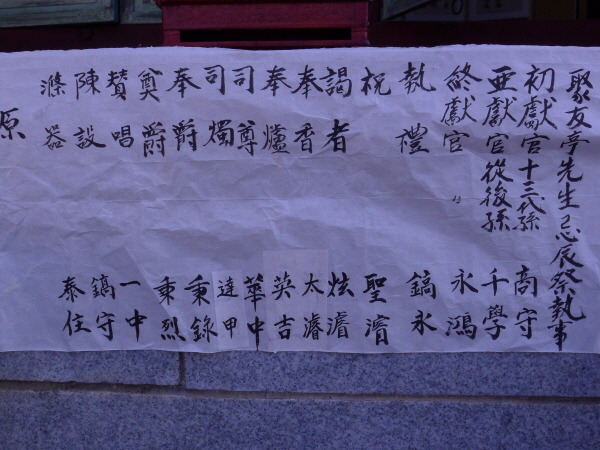 聚友亭先生忌辰祭執事
初獻官十三代孫 商守
亞獻官從後孫 千學
終獻官 〃 永鴻
執禮 鎬永
祝 聖濬
謁者 炫濬
奉香 太濬
奉爐 英吉
司尊 華中
司燭 達甲
奉爵 秉錄
奠爵 秉烈
贊唱 一中
陳設 鎬守
滌器 泰住
原